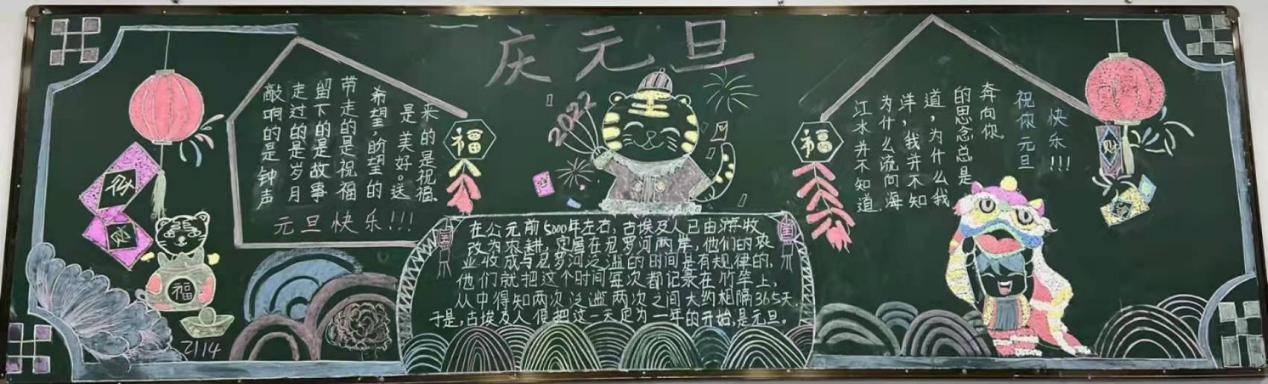 庆元旦
敲响的是钟声
走过的是岁月
留下的是故事
带走的是祝福
希望,盼望的
是美好。送
来的是祝福.
元旦快乐!!!
福
2022
福
江水并不知道
为什么流向海
洋,我并不知
道,为什么我
的思念总是
奔向你.
祝你元旦
快乐!!!
在公元前5000年左右,古埃及人已由游牧
改为农耕,定居在尼罗河两岸,他们的农
业收成与尼罗河泛滥的时间是有规律的,
他们就把这个时间每次都记录在竹竿上,
从中得知两次泛滥两次之间大约相隔365天.
于是,古埃及人便把这一天定为一年的开始,是元旦。
福
2114